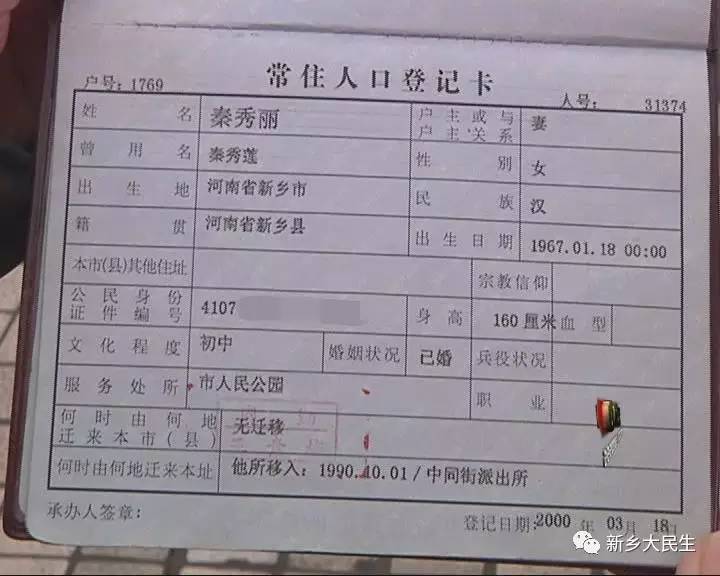 常住人口登记卡
户号: 1769 人号: 31374
姓名 秦秀丽 户主或与户主关系 妻
曾用名 秦秀莲 性别 女
出生地 河南省新乡市 民族 汉
籍贯 河南省新乡县 出生日期 1967.01.18 00:00
本市(县)其他住址 宗教信仰
公民身份证件编号 4107 身高 160 厘米 血型
文化程度 初中 婚姻状况 已婚 兵役状况
服务处所 市人民公园 职业
何时由何地迁来本市(县) 无迁移
何时由何地迁来本址 他所移入: 1990.10.01/中同街派出所
承办人签章: 登记日期: 2000 年 03月 18日
新乡大民生